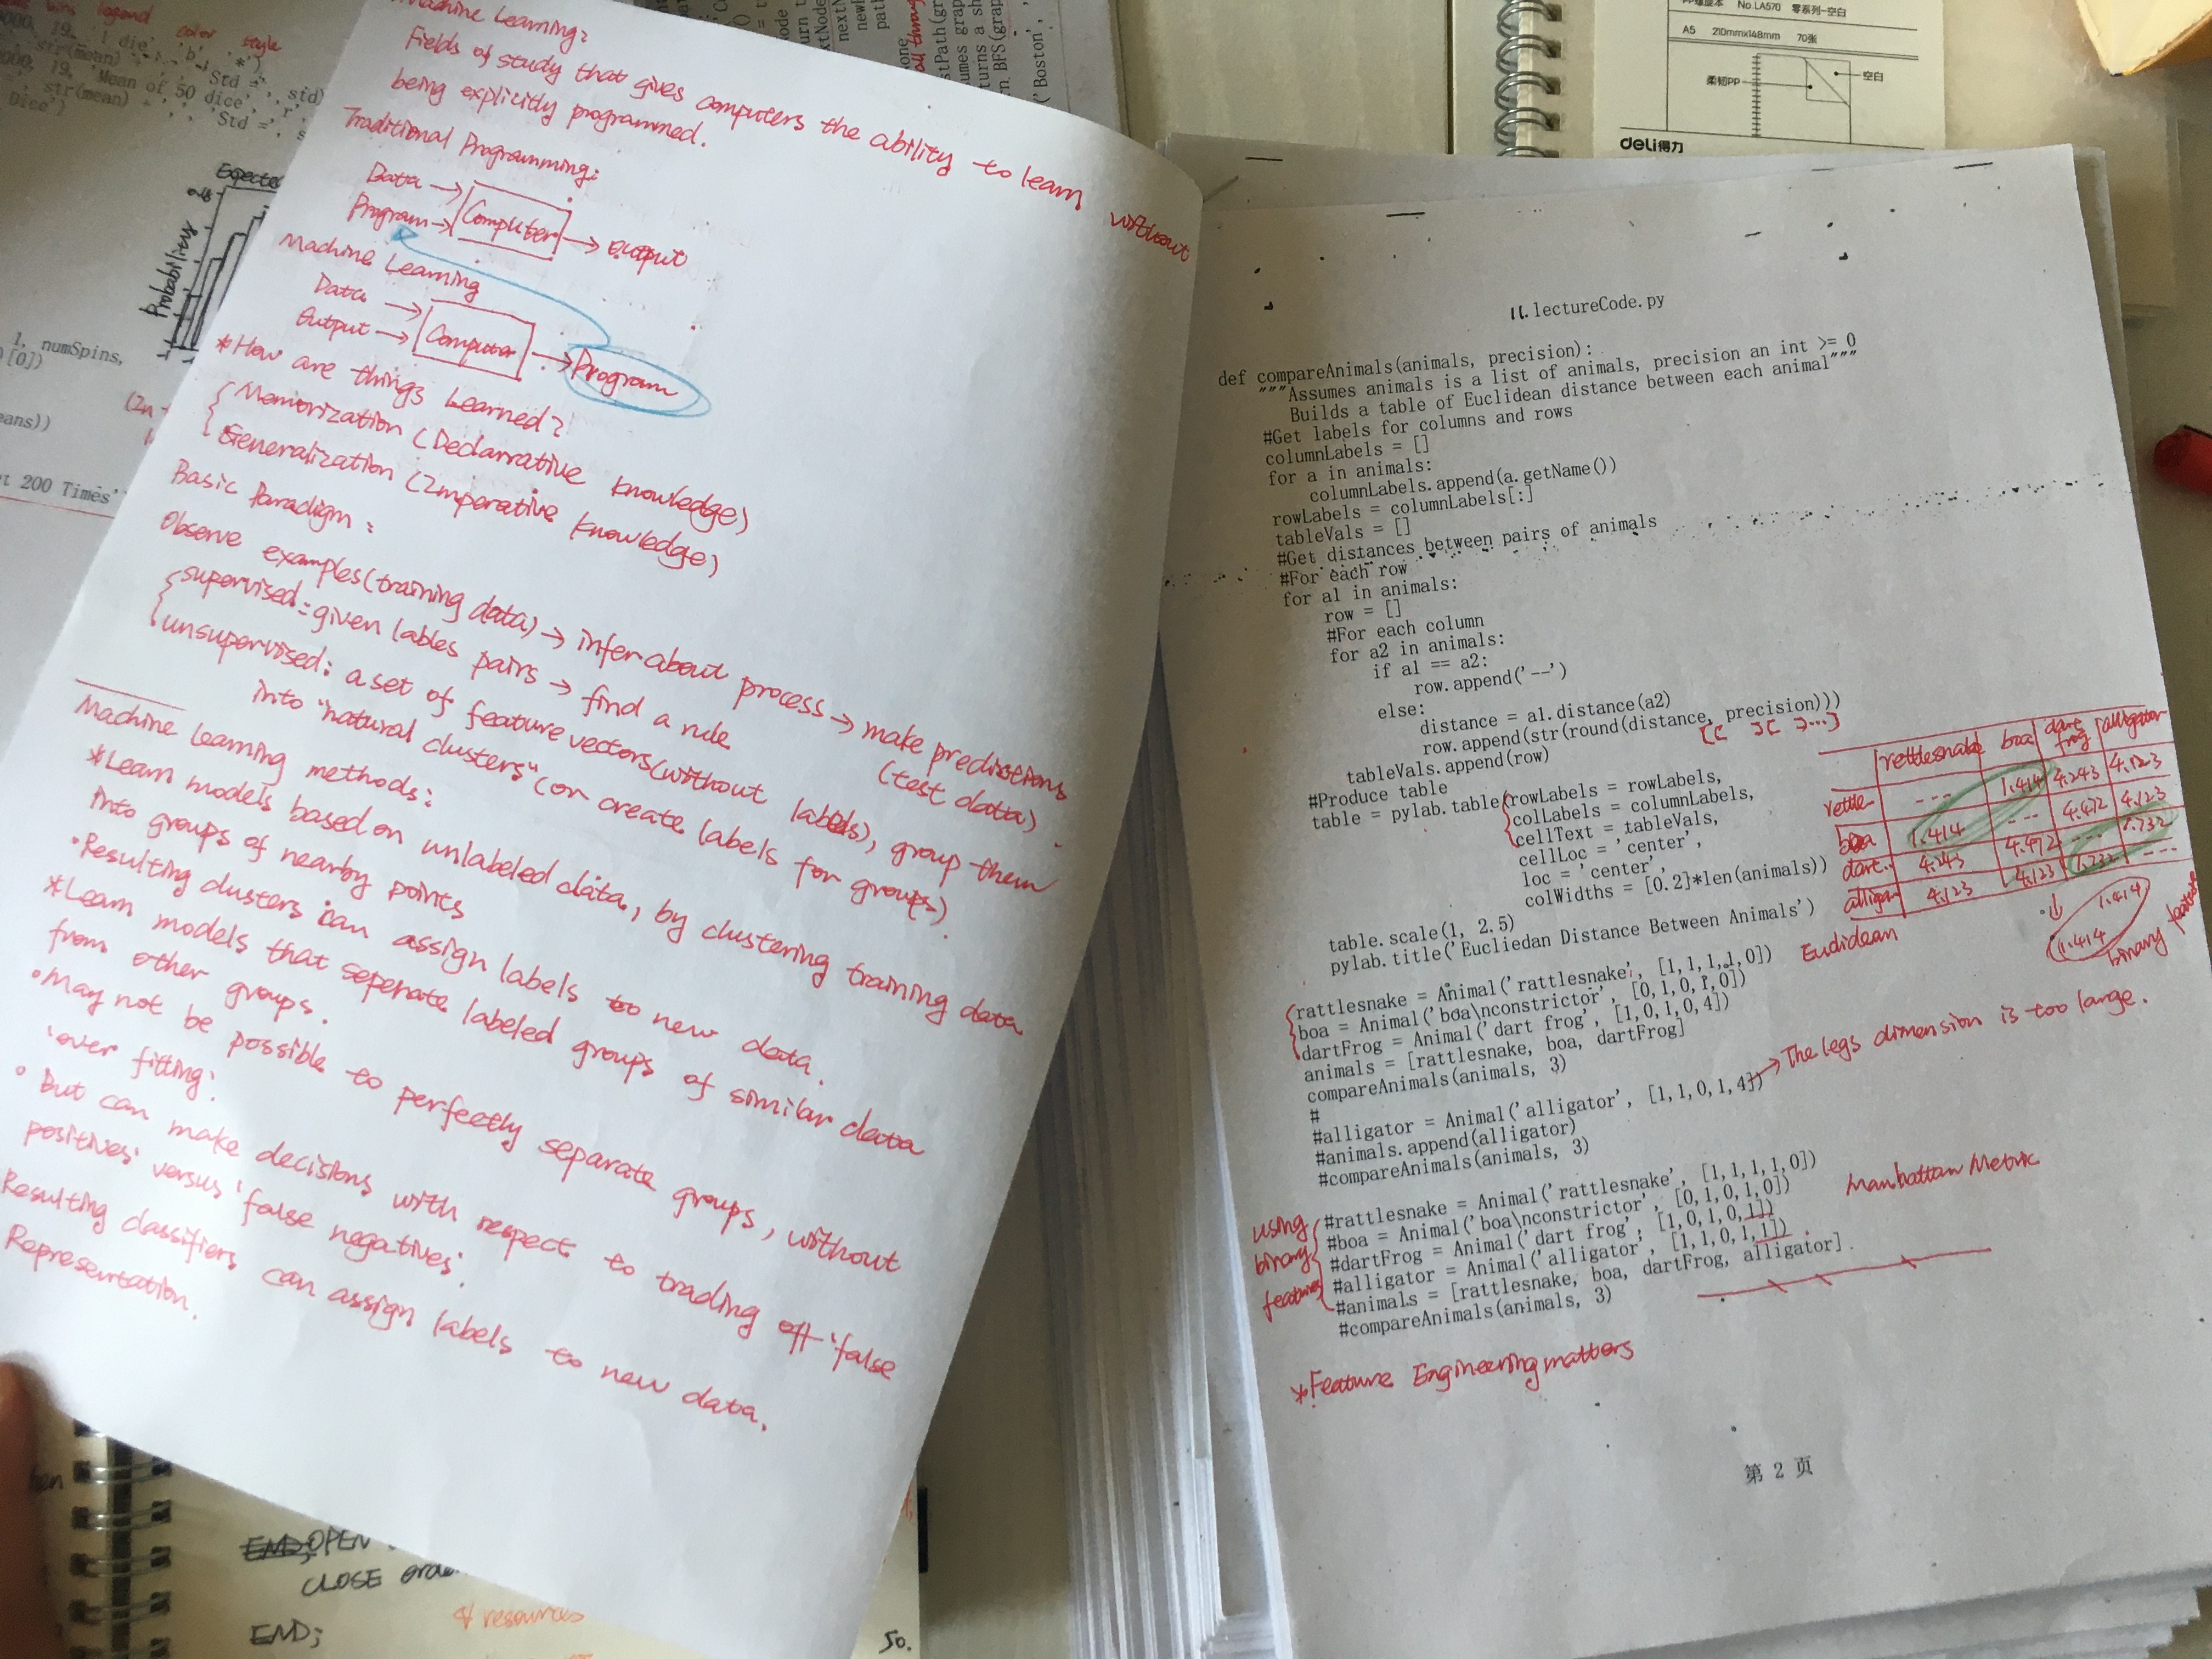 Machine Learning:
Fields of study that gives computers the ability to learn without
being explicitly programmed.
Traditional Programming:
Data
Program
Computer
output
Machine Learning
Data
Output
Computer
Program
*How are things Learned?
Memorization (Declarrative knowledge)
Generalization (Imperative knowledge)
Basic Paradigm:
Observe examples(training data) → infer about process → make predictions
(test data)
supervised: given lables pairs → find a rule
unsupervised: a set of feature vectors(without labels), group them
into "natural clusters" (or create labels for groups).
Machine Learning methods:
*Learn models based on unlabeled data, by clustering training data
into groups of nearby points
• Resulting clusters can assign labels to new data.
*Learn models that seperate labeled groups of similar data
from other groups.
• May not be possible to perfectly separate groups, without
'over fitting'.
• But can make decisions with respect to trading off 'false
positives' versus 'false negatives'.
Resulting classifiers can assign labels to new data.
Representation.
11.lectureCode.py
def compareAnimals(animals, precision):
"""Assumes animals is a list of animals, precision an int >= 0
Builds a table of Euclidean distance between each animal"""
#Get labels for columns and rows
columnLabels = []
for a in animals:
columnLabels.append(a.getName())
rowLabels = columnLabels[:]
tableVals = []
#Get distances between pairs of animals
#For each row
for a1 in animals:
row = []
#For each column
for a2 in animals:
if a1 == a2:
row.append('--')
else:
distance = a1.distance(a2)
row.append(str(round(distance, precision)))
[[ ][ ]...]
tableVals.append(row)
#Produce table
table = pylab.table(rowLabels = rowLabels,
colLabels = columnLabels,
cellText = tableVals,
cellLoc = 'center',
loc = 'center',
colWidths = [0.2]*len(animals))
table.scale(1, 2.5)
pylab.title('Eucliedan Distance Between Animals')
Euclidean
rettlesnake boa dart frog alligator
rettle --- 1.414 4.243 4.123
boa 1.414 --- 4.472 4.123
dart. 4.243 4.472 --- 1.732
alligan 4.123 4.123 1.732 ---
1.414
1.414
binary feature
rattlesnake = Animal('rattlesnake', [1,1,1,1,0])
boa = Animal('boa\nconstrictor', [0,1,0,1,0])
dartFrog = Animal('dart frog', [1,0,1,0,4])
animals = [rattlesnake, boa, dartFrog]
compareAnimals(animals, 3)
#
#alligator = Animal('alligator', [1,1,0,1,4])
→ The legs dimension is too large.
#animals.append(alligator)
#compareAnimals(animals, 3)
using
binary
features
#rattlesnake = Animal('rattlesnake', [1,1,1,1,0])
#boa = Animal('boa\nconstrictor', [0,1,0,1,0])
#dartFrog = Animal('dart frog', [1,0,1,0,1])
#alligator = Animal('alligator', [1,1,0,1,1])
#animals = [rattlesnake, boa, dartFrog, alligator]
#compareAnimals(animals, 3)
Manhattan Metric
*Feature Engineering matters
第 2 页
No.LA570 零系列-空白
A5 210mmx148mm 70张
空白
柔韧PP
deli得力
color style
1 die', 'b', '*')
str(mean)
Std =', std)
19, 'Mean of 50 dice', 'r',
str(mean) +
'Std ='
Dice')
Probabilities
1, numSpins,
[0])
eans))
t 200 Times'
stPath(gr
umes grap
turns a sh
n. BFS(grap
('Boston',
OPEN
CLOSE
END;
resources
50.